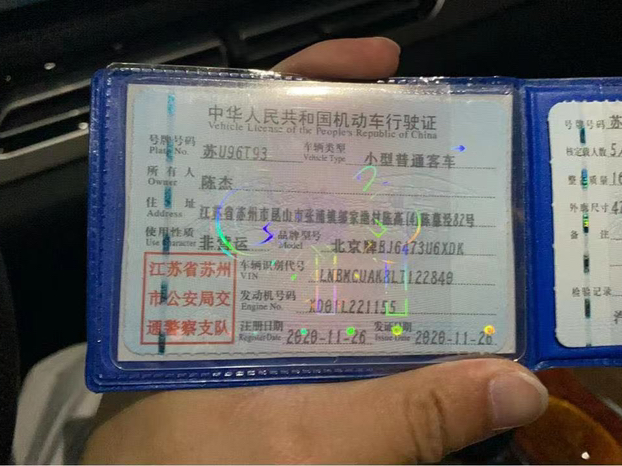 中华人民共和国机动车行驶证
Vehicle License of the People's Republic of China
号牌号码 苏U96T93 车辆类型 小型普通客车
Plate No. Vehicle Type
所有人 陈杰
Owner
住址 江苏省苏州市昆山市张浦镇
Address
使用性质 非营运 品牌型号 北京牌BJ6473U6XDK
Use Character Model
江苏省苏州
市公安局交
通警察支队
车辆识别代号
VIN
发动机号码
Engine No.
注册日期 2020-11-26 发证日期 2020-11-26
Register Date Issue Date
号牌号码 苏
核定载人数 5人
整备质量 16
外廓尺寸 47
备注
检验记录